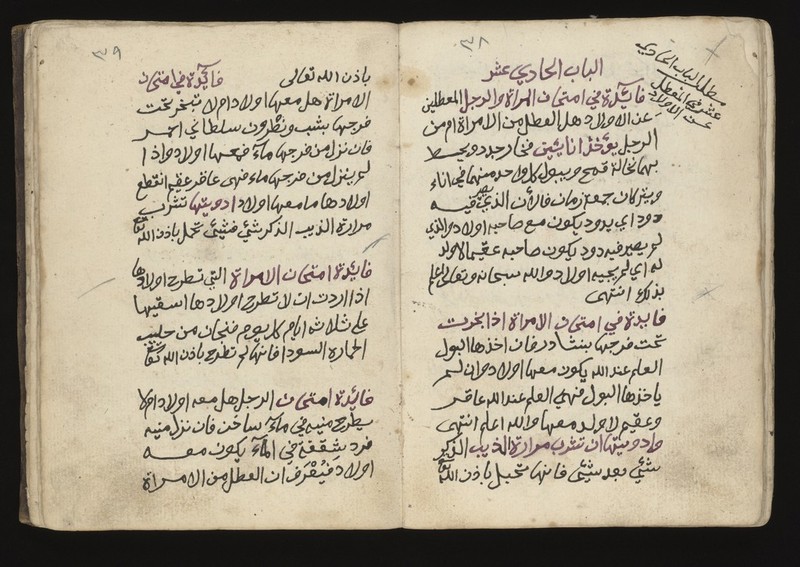 ٣٨
مطلب الباب الحادي
عشر في المعطل
عن الاولاد
الباب الحادي عشر
فائدة في امتحان المراة والرجل المعطلين
عن الاولاد هل العطل من الامراة او من
الرجل يؤخذ انائين فخار جدد ويحط
بهما نخالة قمح ويبول كل واحد منهما في اناء
ويتركان جمعة زمان فالأن الذي يصير فيه
دود اي يدود يكون مع صاحبه اولاد والذي
لم يصير فيه دود يكون صاحبه عقيم لا ولد
له اي لم يجيه اولاد والله سبحانه وتعالى اعلم
بذلك انتهى
فايدة في امتحان الامراة اذا بخرت
تحت فرجها بنشادر فان اخذها البول
العلم عند الله يكون معها اولاد وان لم
ياخذها البول فهي العلم عند الله عاقر
وعقيم لا ولد معها والله اعلم انتهى
وادويتها ان تشرب مرارة الذيب الذكر
شيئ بعد شيئ فانها تحبل باذن الله تعالى
٣٩
باذن الله تعالى فائدة في امتحان
الامراة هل معها اولاد ام لا تبخر تحت
فرجها بشب ونطرون سلطاني احمر
فان نزل من فرجها ماء فمعها اولاد واذا
لم ينزل من فرجها ماء فهي عاقر عقيم انقطع
اولادها ما معها اولاد ادويتها تشرب
مرارة الذيب الذكر شيئ فشيئ تحمل باذن الله تعالى
فائدة امتحان الامراة التي تطرح اولادها
اذا اردت ان لا تطرح اولادها اسقيها
على ثلاثة ايام كل يوم فنجان من حليب
الحمارة السودا فانها لم تطرح باذن الله تعالى
فائدة امتحان الرجل هل معه اولاد ام لا
يطرح منيه في ماء ساخن فان نزل منيه
فرد شقفة في الماء يكون معه
اولاد فيعرف ان العطل من الامراة